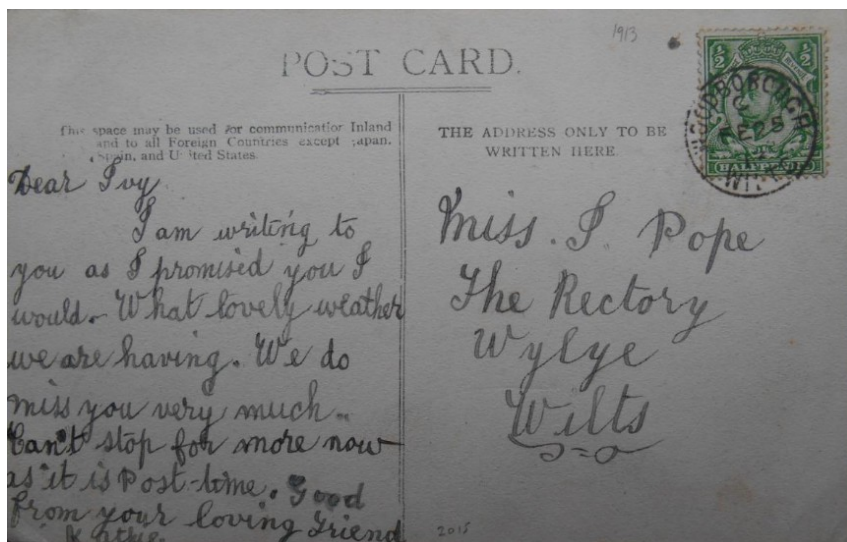 1913
POST CARD.
This space may be used for communication Inland
and to all Foreign Countries except Japan,
Spain, and United States.
THE ADDRESS ONLY TO BE
WRITTEN HERE.
½ ½
HALFPENNY
WOODBOROUGH
FE 25
Dear Ivy
I am writing to
you as I promised you I
would. What lovely weather
we are having. We do
miss you very much.
Can't stop for more now
as it is Post-time. Good
from your loving Friend
Miss. I. Pope
The Rectory
Wylye
Wilts
2015